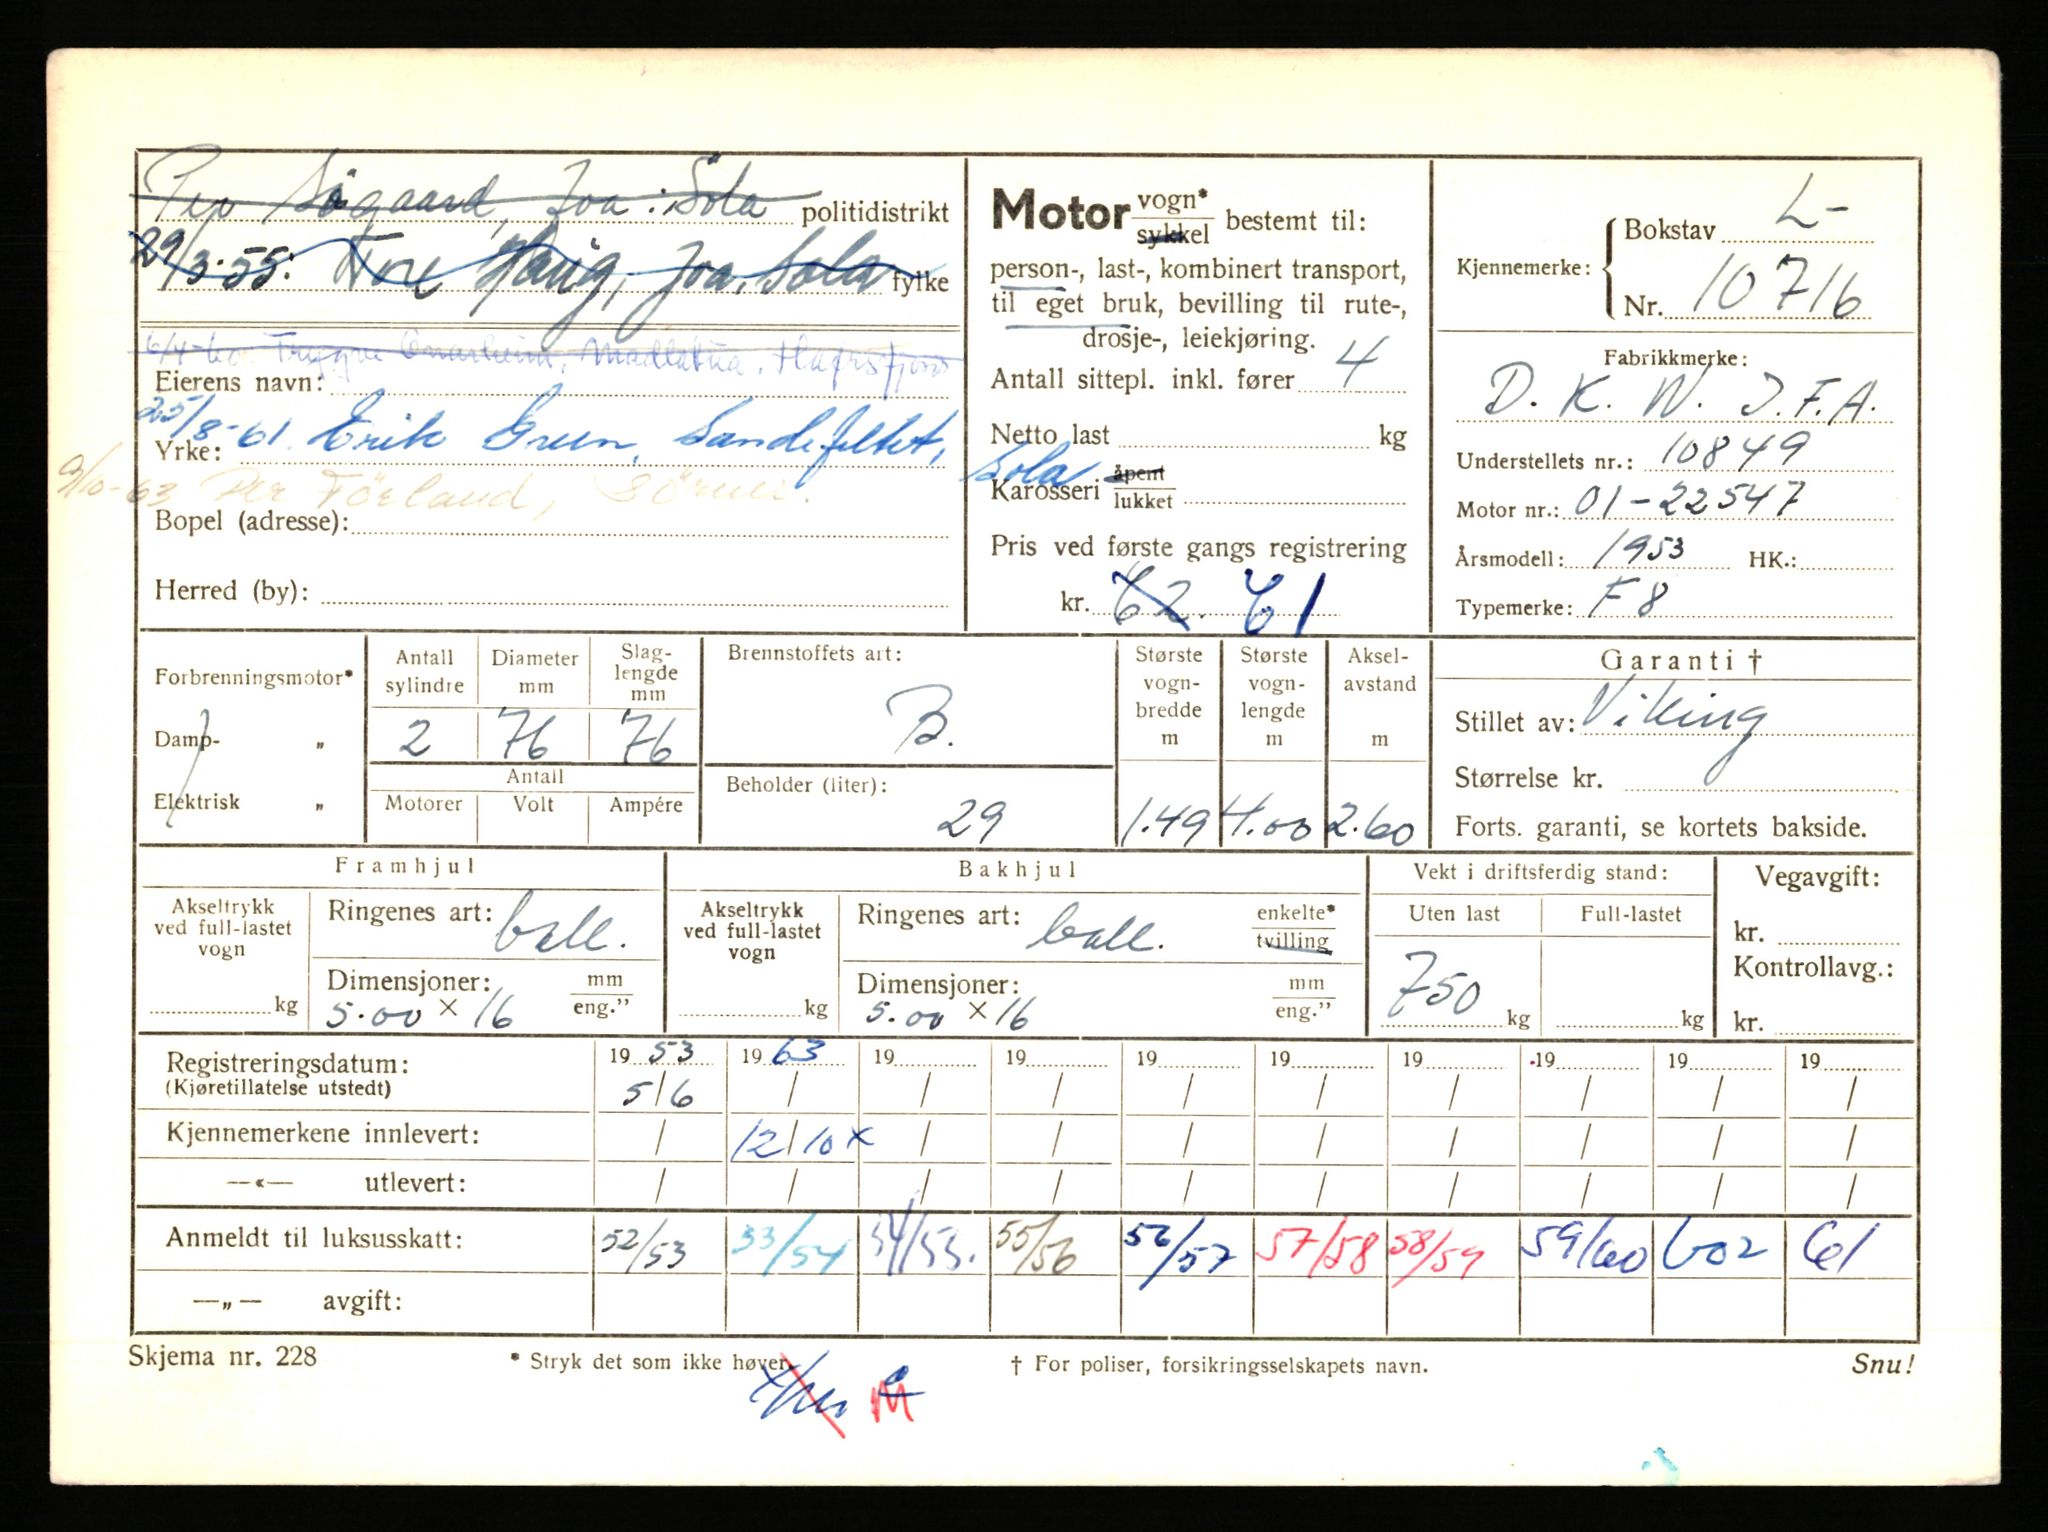 Per Søgaard, Joa. Sola politidistrikt
29/3-55: Tore Haug, Joa, Sola fylke
6/4-60. Trygve Onarheim, Madlatua, Hafrsfjord
Eierens navn:
25/8-61. Erik Green, Sandefeltet, Sola
Yrke:
9/10-63 Per Förland,
Bopel (adresse):
Herred (by):
Motor vogn* sykkel bestemt til:
person-, last-, kombinert transport,
til eget bruk, bevilling til rute-,
drosje-, leiekjøring.
Antall sittepl. inkl. fører 4
Netto last kg
Karosseri åpent lukket
Pris ved første gangs registrering
kr. 62. 61
Kjennemerke: Bokstav L-
Nr. 10716
Fabrikkmerke:
D. K. W. I.F.A.
Understellets nr.: 10849
Motor nr.: 01-22547
Årsmodell: 1953 HK.:
Typemerke: F 8
Forbrenningsmotor*
Damp- „
Elektrisk „
Antall sylindre 2
Diameter mm 76
Slag-lengde mm 76
Antall
Motorer Volt Ampére
Brennstoffets art:
B.
Beholder (liter):
29
Største vogn-bredde m 1.49
Største vogn-lengde m 4.00
Aksel-avstand m 2.60
Garanti †
Stillet av: Viking
Størrelse kr.
Forts. garanti, se kortets bakside.
Framhjul
Akseltrykk ved full-lastet vogn kg
Ringenes art: ball.
Dimensjoner: mm eng.”
5.00 × 16
Bakhjul
Akseltrykk ved full-lastet vogn kg
Ringenes art: ball. enkelte* tvilling
Dimensjoner: mm eng.”
5.00 × 16
Vekt i driftsferdig stand:
Uten last Full-lastet
750 kg kg
Vegavgift:
kr.
Kontrollavg.:
kr.
Registreringsdatum: 19 53 19 63 19 19 19 19 19 19 19 19
(Kjøretillatelse utstedt) 5/6 / / / / / / / / /
Kjennemerkene innlevert: / 12/10 x / / / / / / / /
—«— utlevert: / / / / / / / / / /
Anmeldt til luksusskatt: 52/53 53/54 54/55. 55/56 56/57 57/58 58/59 59/60 602 61
—„— avgift:
Skjema nr. 228 * Stryk det som ikke høver. † For poliser, forsikringsselskapets navn. Snu!
M